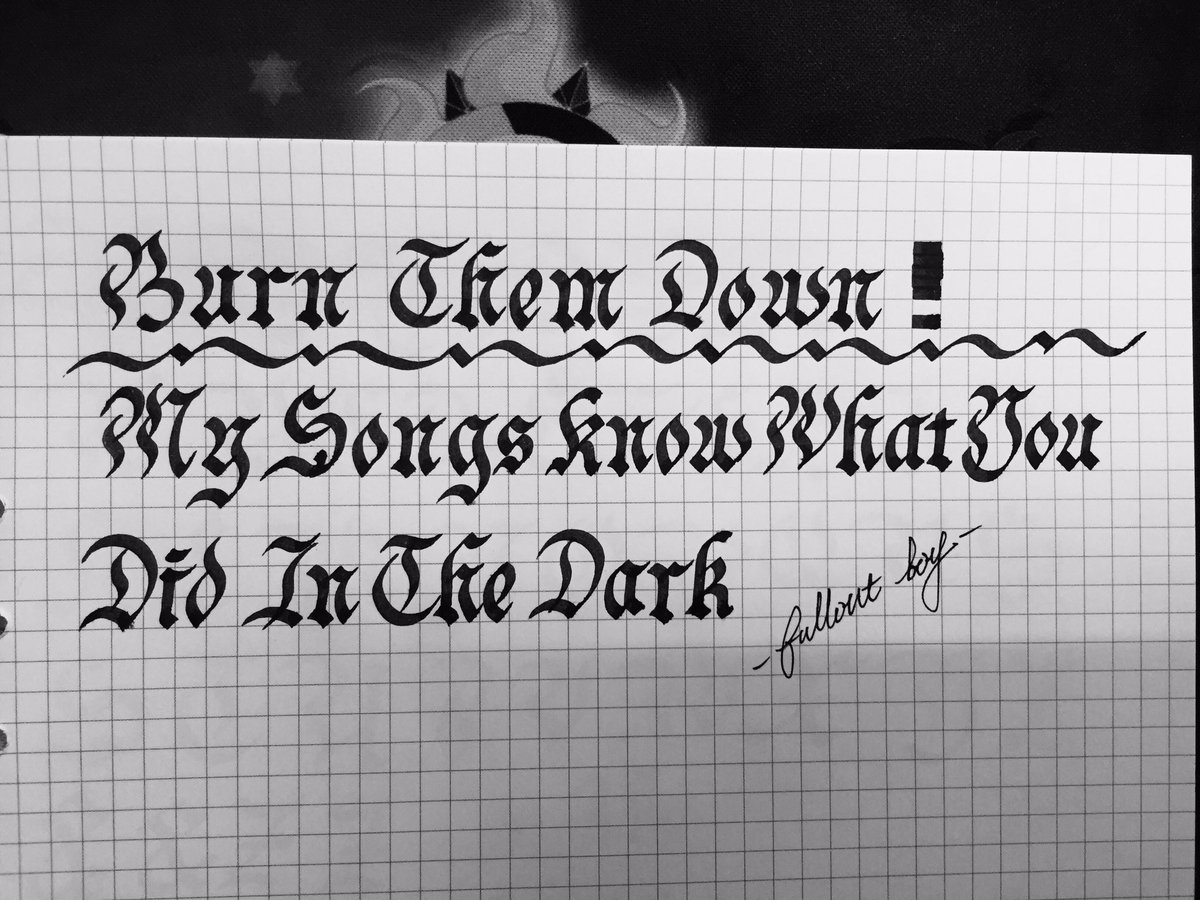 Burn Them Down !
My Songs Know What You
Did In The Dark
- fullout boy -